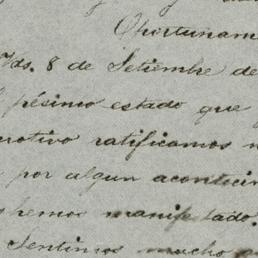 Oportunam
Vds. 8 de Setiembre de
pésimo estado que
motivo ratificamos
por algun acontecim
hemos manifestado.
Sentimos mucho